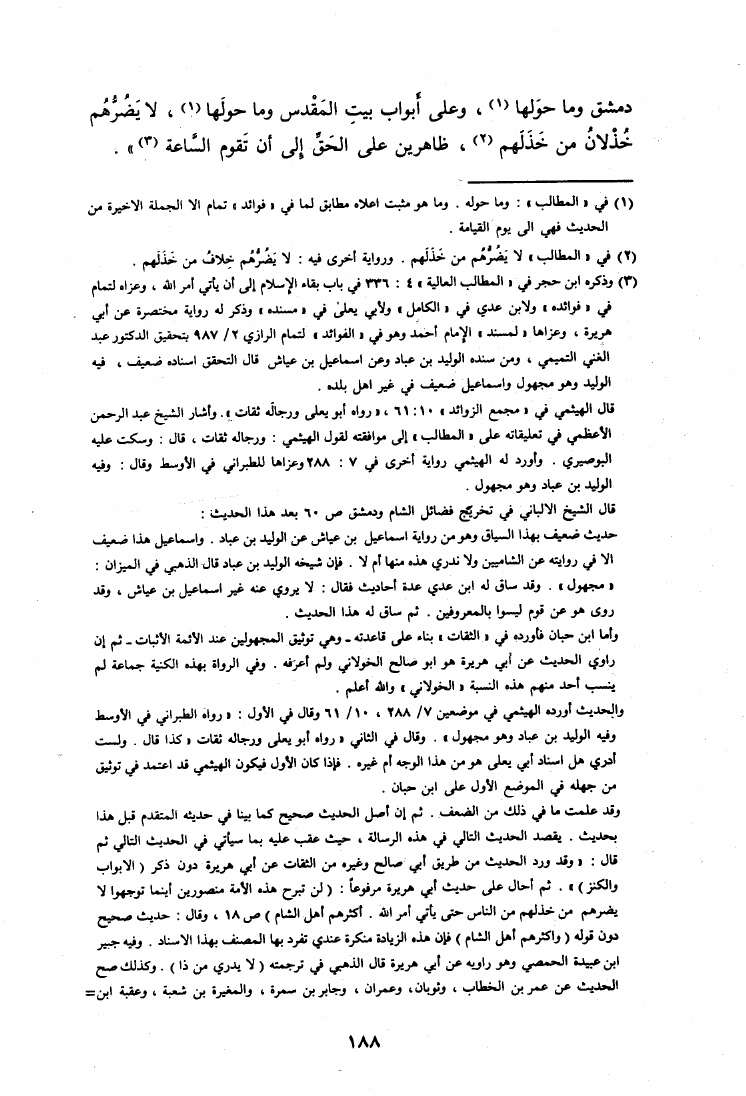 دمشق وما حوَلها (١) ، وعلى أَبواب بيتِ المَقْدس وما حولَها (١) ، لا يَضُرُّهُم
خُذْلانُ من خَذَلَهم (٢) ، ظاهرين على الحَقِّ إِلى أن تَقوم السَّاعة (٣) » .
(١) في « المطالب » : وما حوله . وما هو مثبت اعلاه مطابق لما في « فوائد » تمام الا الجملة الاخيرة من
الحديث فهي الى يوم القيامة .
(٢) في « المطالب » لا يَضُرُّهُم من خَذَلَهم . ورواية أخرى فيه : لا يَضُرُّهُم خِلافُ من خَذَلَهم .
(٣) وذكره ابن حجر في « المطالب العالية » ٤ : ٣٣٦ في باب بقاء الإسلام إلى أن يأتي أمر الله ، وعزاه لتمام
في « فوائده » ولابن عدي في « الكامل » ولأبي يعلىٰ في « مسنده » وذكر له رواية مختصرة عن أبي
هريرة ، وعزاها « لمسند » الإمام أحمد وهو في « الفوائد » لتمام الرازي ٢ / ٩٨٧ بتحقيق الدكتور عبد
الغني التميمي ، ومن سنده الوليد بن عباد وعن اسماعيل بن عياش قال التحقق اسناده ضعيف ، فيه
الوليد وهو مجهول واسماعيل ضعيف في غير اهل بلده .
قال الهيثمي في « مجمع الزوائد » ١٠ : ٦١ ، « رواه أبو يعلى ورجاله ثقات » . وأشار الشيخ عبد الرحمن
الأعظمي في تعليقاته على « المطالب » إلى موافقته لقول الهيثمي : ورجاله ثقات ، قال : وسكت عليه
البوصيري . وأورد له الهيثمي رواية أخرى في ٧ : ٢٨٨ وعزاها للطبراني في الأوسط وقال : وفيه
الوليد بن عباد وهو مجهول .
قال الشيخ الالباني في تخريج فضائل الشام ودمشق ص ٦٠ بعد هذا الحديث :
حديث ضعيف بهذا السياق وهو من رواية اسماعيل بن عياش عن الوليد بن عباد . واسماعيل هذا ضعيف
الا في روايته عن الشاميين ولا ندري هذه منها أم لا . فإن شيخه الوليد بن عباد قال الذهبي في الميزان :
« مجهول » . وقد ساق له ابن عدي عدة أحاديث فقال : لا يروي عنه غير اسماعيل بن عياش ، وقد
روى هو عن قوم ليسوا بالمعروفين . ثم ساق له هذا الحديث .
وأما ابن حبان فأورده في « الثقات » بناء على قاعدته ـ وهي توثيق المجهولين عند الأئمة الأثبات ـ ثم إن
راوي الحديث عن أبي هريرة هو ابو صالح الخولاني ولم أعرفه . وفي الرواة بهذه الكنية جماعة لم
ينسب أحد منهم هذه النسبة « الخولاني » والله أعلم .
والحديث أورده الهيثمي في موضعين ٧ / ٢٨٨ ، ١٠ / ٦١ وقال في الأول : « رواه الطبراني في الأوسط
وفيه الوليد بن عباد وهو مجهول » . وقال في الثاني « رواه أبو يعلى ورجاله ثقات » كذا قال . ولست
أدري هل اسناد أبي يعلى هو من هذا الوجه أم غيره . فإذا كان الأول فيكون الهيثمي قد اعتمد في توثيق
من جهله في الموضع الأول على ابن حبان .
وقد علمت ما في ذلك من الضعف . ثم إن أصل الحديث صحيح كما بينا في حديثه المتقدم قبل هذا
بحديث . يقصد الحديث التالي في هذه الرسالة ، حيث عقب عليه بما سيأتي في الحديث التالي ثم
قال : « وقد ورد الحديث من طريق أبي صالح وغيره من الثقات عن أبي هريرة دون ذكر ( الابواب
والكنز ) » . ثم أحال على حديث أبي هريرة مرفوعاً : ( لن تبرح هذه الأمة منصورين أينما توجهوا لا
يضرهم من خذلهم من الناس حتى يأتي أمر الله . أكثرهم أهل الشام ) ص ١٨ ، وقال : حديث صحيح
دون قوله ( واكثرهم أهل الشام ) فإن هذه الزيادة منكرة عندي تفرد بها المصنف بهذا الاسناد . وفيه جبير
ابن عبيدة الحمصي وهو راويه عن أبي هريرة قال الذهبي في ترجمته ( لا يدري من ذا ) . وكذلك صح
الحديث عن عمر بن الخطاب ، وثوبان، وعمران ، وجابر بن سمرة ، والمغيرة بن شعبة ، وعقبة ابن=
١٨٨